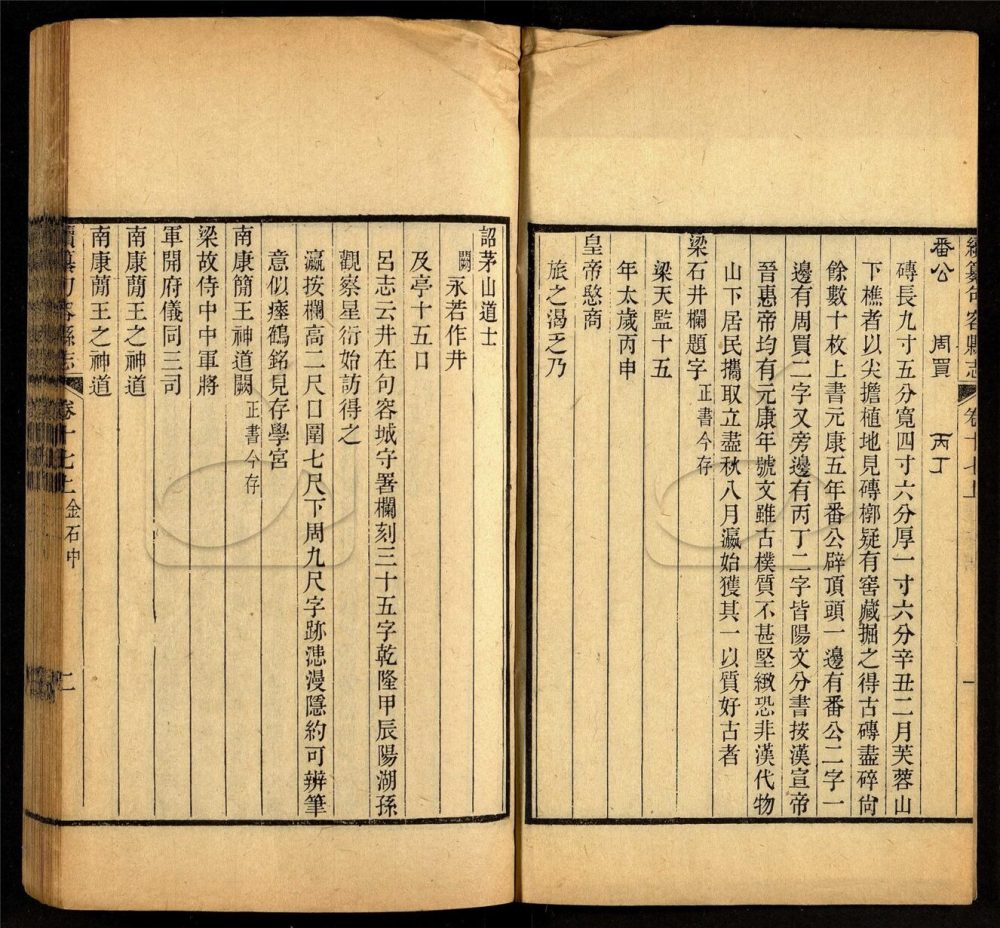 續纂句容縣志 卷十七上 一
番公 周買 丙丁
磚長九寸五分寬四寸六分厚一寸六分辛丑二月芙蓉山
下樵者以尖擔植地見磚槨疑有窖藏掘之得古磚盡碎尙
餘數十枚上書元康五年番公辟頂頭一邊有番公二字一
邊有周買二字又旁邊有丙丁二字皆陽文分書按漢宣帝
晉惠帝均有元康年號文雖古樸質不甚堅緻恐非漢代物
山下居民攜取立盡秋八月瀛始獲其一以質好古者
梁石井欄題字 正書今存
梁天監十五
年太歲丙申
皇帝愍商
旅之渴乏乃
詔茅山道士
闕永若作井
及亭十五口
呂志云井在句容城守署欄刻三十五字乾隆甲辰陽湖孫
觀察星衍始訪得之
瀛按欄高二尺口圍七尺下周九尺字跡漶漫隱約可辨筆
意似瘞鶴銘見存學宮
南康簡王神道闕 正書今存
梁故侍中中軍將
軍開府儀同三司
南康蕑王之神道
南康蕑王之神道
續纂句容縣志 卷十七上 金石中 二